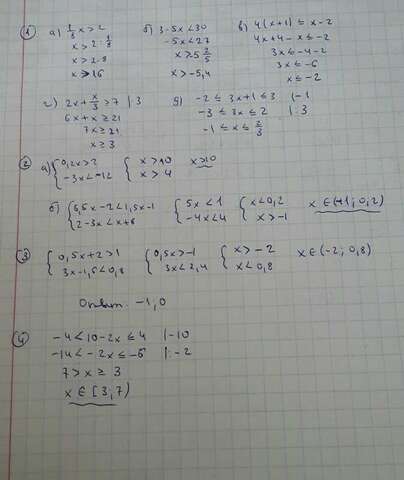 ① а) 1/8 x > 2
x > 2 : 1/8
x > 2·8
x > 16
б) 3-5x < 30
-5x < 27
x > 5 2/5
x > -5,4
в) 4(x+1) ≤ x-2
4x+4-x ≤ -2
3x ≤ -4-2
3x ≤ -6
x ≤ -2
г) 2x + x/3 ≥ 7 |·3
6x + x ≥ 21
7x ≥ 21
x ≥ 3
д) -2 ≤ 3x+1 ≤ 3 |-1
-3 ≤ 3x ≤ 2 |:3
-1 ≤ x ≤ 2/3
② а) { 0,2x > 2 { x > 10 x > 10
-3x < -12 x > 4
б) { 6,5x-2 < 1,5x-1 { 5x < 1 { x < 0,2 x ∈ (-1; 0,2)
2-3x < x+6 -4x < 4 x > -1
③ { 0,5x+2 > 1 { 0,5x > -1 { x > -2 x ∈ (-2; 0,8)
3x-1,6 < 0,8 3x < 2,4 x < 0,8
Ответ: -1, 0
④
-4 < 10-2x ≤ 4 |-10
-14 < -2x ≤ -6 |:-2
7 > x ≥ 3
x ∈ [3, 7)